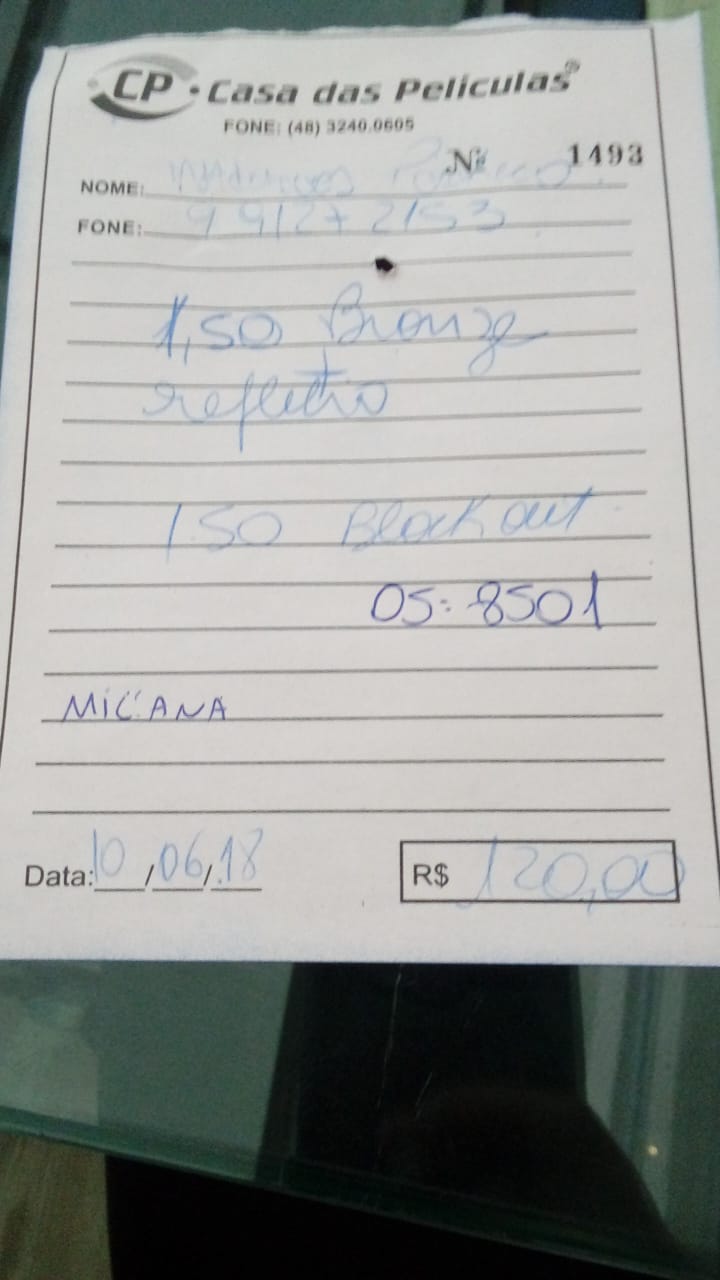 CP • Casa das Películas®
FONE: (48) 3240.0605
Nº 1493
NOME:
FONE: 9 9127 2153
1,50 Bronze
refletio
1.50 Black out
OS: 8501
Data: 10/06/18 R$ 120,00